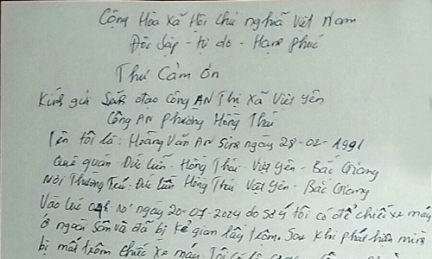 Cộng Hòa Xã Hội chủ nghĩa Việt Nam
Độc lập - tự do - Hạnh phúc
Thư Cảm ơn
Kính gửi Lãnh đạo Công AN Thị Xã Việt Yên
Công AN phường Hồng Thái
Tên tôi là: Hoàng Văn An Sinh ngày 28-02-1991
Quê quán Đức Liễn - Hồng Thái - Việt Yên - Bắc Giang
Nơi Thường Trú: Đức Liễn Hồng Thái Việt Yên - Bắc Giang
Vào lúc ngày 20-07-2024 do sơ ý tôi có để chiếc xe máy
ở ngoài sân và đã bị kẻ gian lấy trộm. Sau khi phát hiện mình
bị mất trộm chiếc xe máy Tôi có